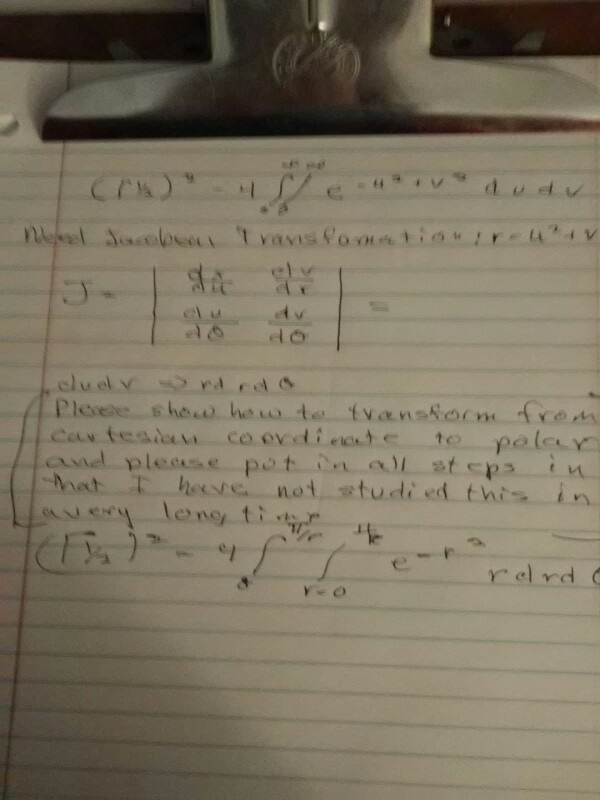 (Γ½)² = 4 ∫∫ e -u² + v² du dv
Need Jacobean Transfomation: r = u² + v
J = | du/dr dv/dr |
| du/dθ dv/dθ | =
dudv => rdrdθ
Please show how to transform from
cartesian coordinate to polar
and please put in all steps in
that I have not studied this in
a very long time
(Γ½)² = 4 ∫ ∫ r=0 e -r² rdrd